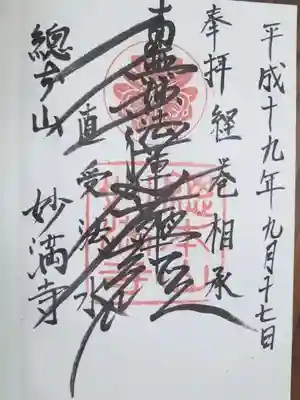 平成十九年九月十七日
奉拝 経巻相承
南無妙法蓮華経
直受法水
總本山 妙満寺